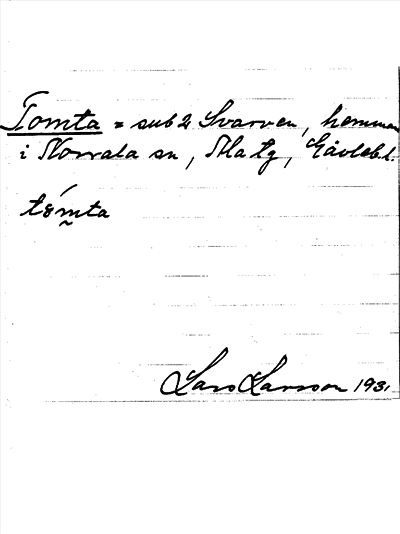 Tomta = sub 2 Svarven, hemman
i Norrala sn, Ala tg, Gävlebl.
tómta
Lars Larsson 1931